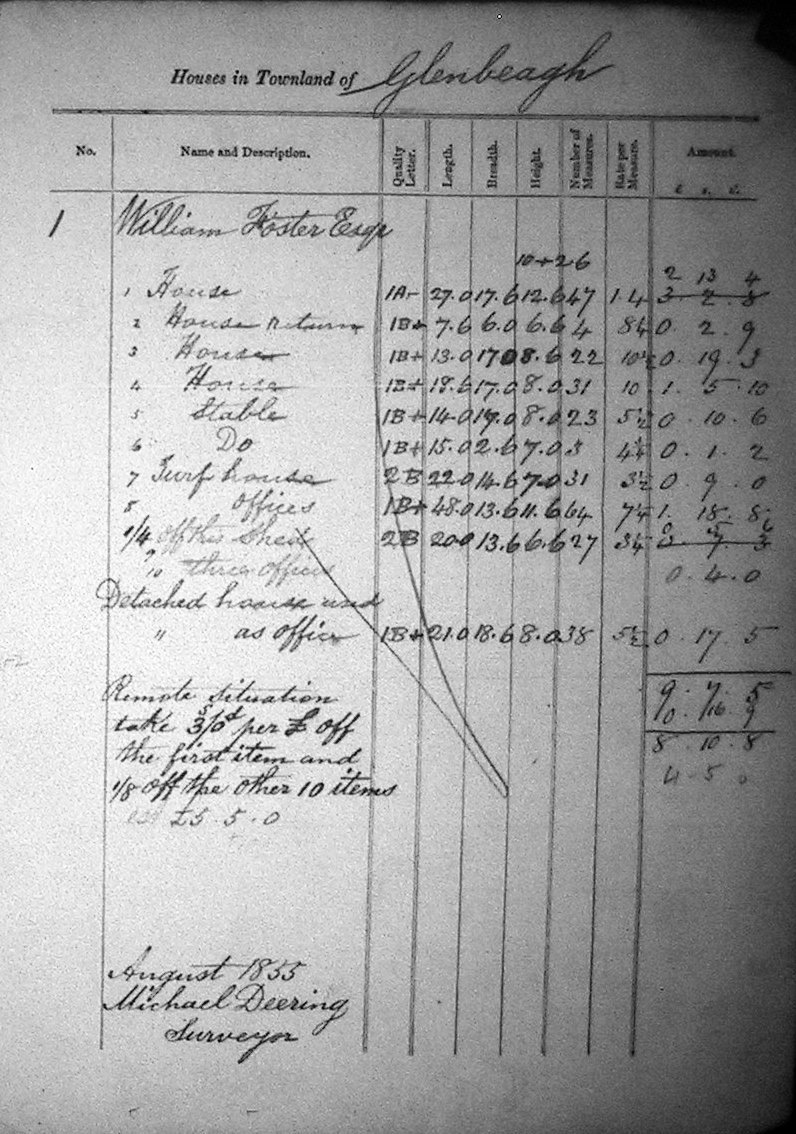 Houses in Townland of Glenbeagh
No. Name and Description. Quality Letter. Length. Breadth. Height. Number of Measures. Rate per Measure. Amount.
£ s. d.
1 William Foster Esqr
10+2 6
2 13 4
1 House 1A- 27.0 17.6 12.6 47 1.4 3 2 8
2 House return 1B+ 7.6 6.0 6.6 4 8¼ 0. 2. 9
3 House 1B+ 13.0 17.0 8.6 22 10½ 0. 19. 3
4 House 1B+ 18.6 17.0 8.0 31 10 1. 5. 10
5 Stable 1B+ 14.0 17.0 8.0 23 5½ 0. 10. 6
6 Do 1B+ 15.0 2.6 7.0 3 4½ 0. 1. 2
7 Turf house 2B 22.0 14.6 7.0 31 3½ 0. 9. 0
8 offices 1B+ 48.0 13.6 11.6 64 7¼ 1. 18. 8
1/4 off this Shed 2B 20.0 13.6 6.6 27 3¼ 7 3
9
10 three offices 0. 4. 0
Detached house used
" as office 1B+ 21.0 18.6 8.0 38 5½ 0. 17. 5
Remote situation 9. 7. 5
take 3/0 per £ off 0. 16. 9
the first item and 8. 10. 8
1/8 off the other 10 items 4. 5. 0
£5. 5. 0
August 1855
Michael Deering
Surveyor